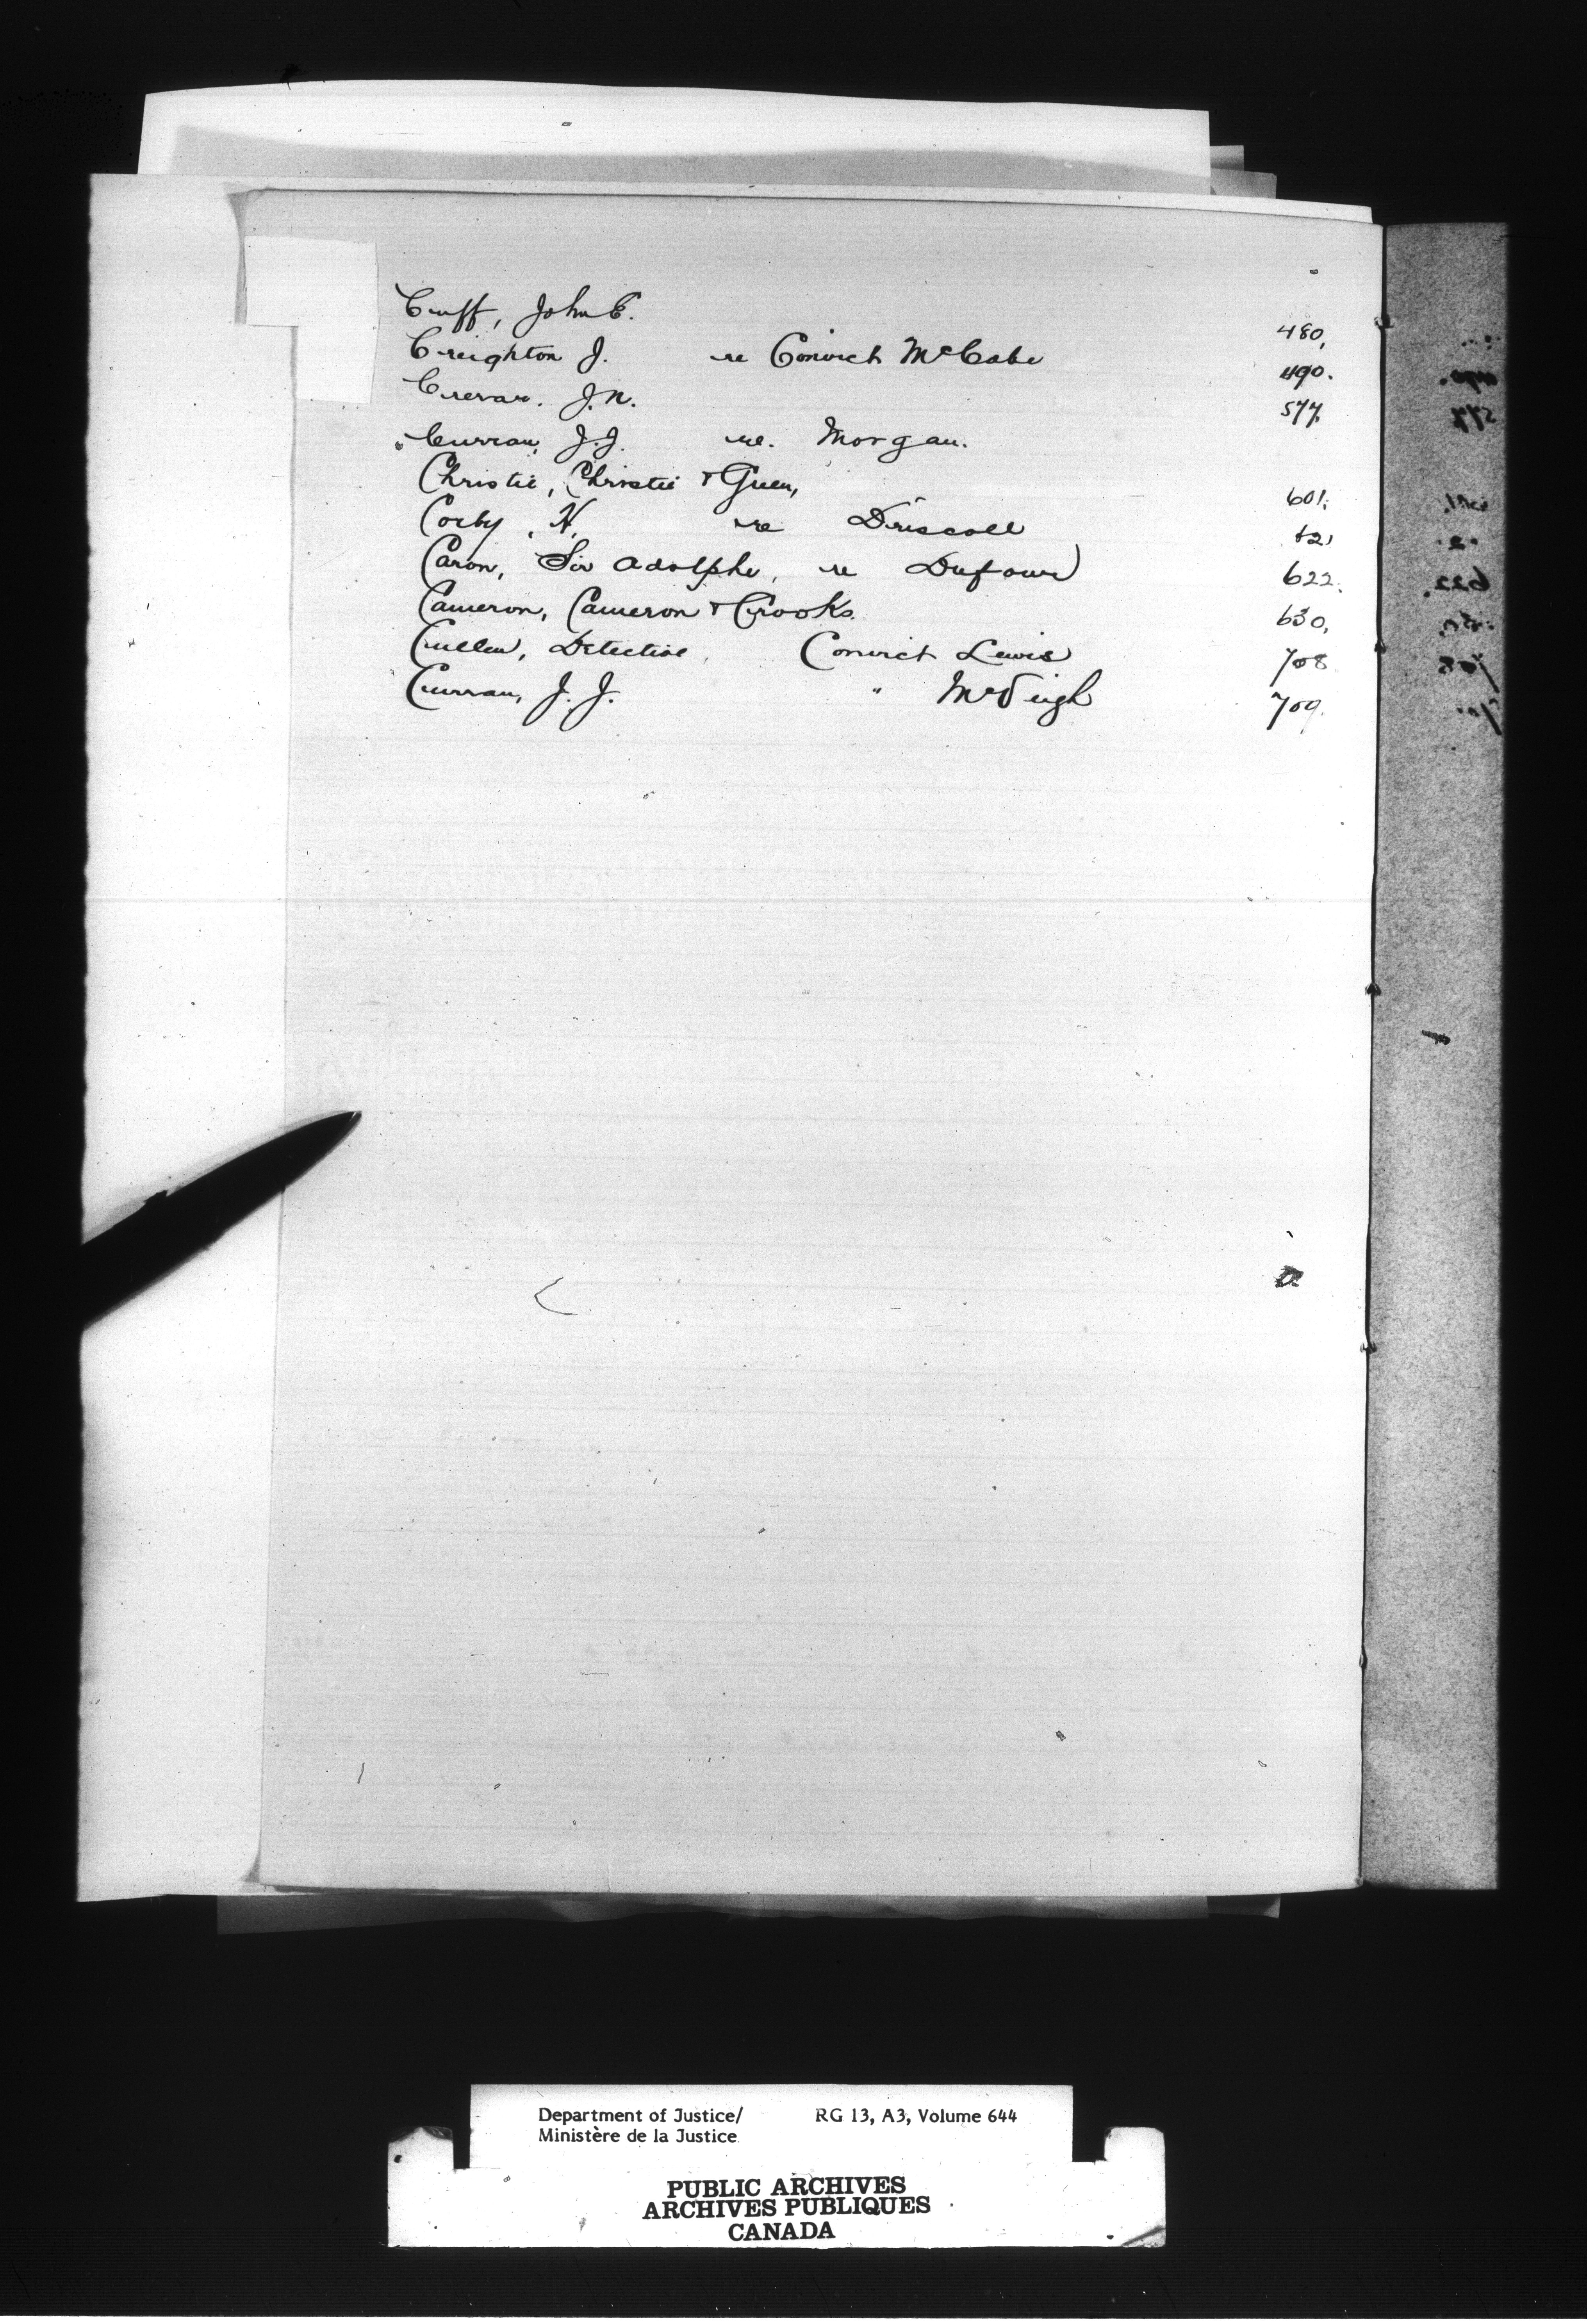 Cuff, John C. 480,
Creighton J. re Convict McCabe 490.
Crerar. J.N. 577.
Curran, J.J. re. Morgan.
Christie, Christie & Green, 601.
Corby, H. re Driscoll 621
Caron, Sir Adolphe, re Dufour 622.
Cameron, Cameron & Crooks. 630,
Cullen, Detective, Convict Lewis 708
Curran, J. J. " McVeigh 709.
Department of Justice/ RG 13, A3, Volume 644
Ministère de la Justice
PUBLIC ARCHIVES
ARCHIVES PUBLIQUES
CANADA